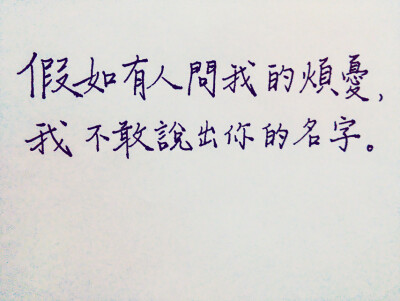 假如有人問我的煩憂，
我不敢說出你的名字。